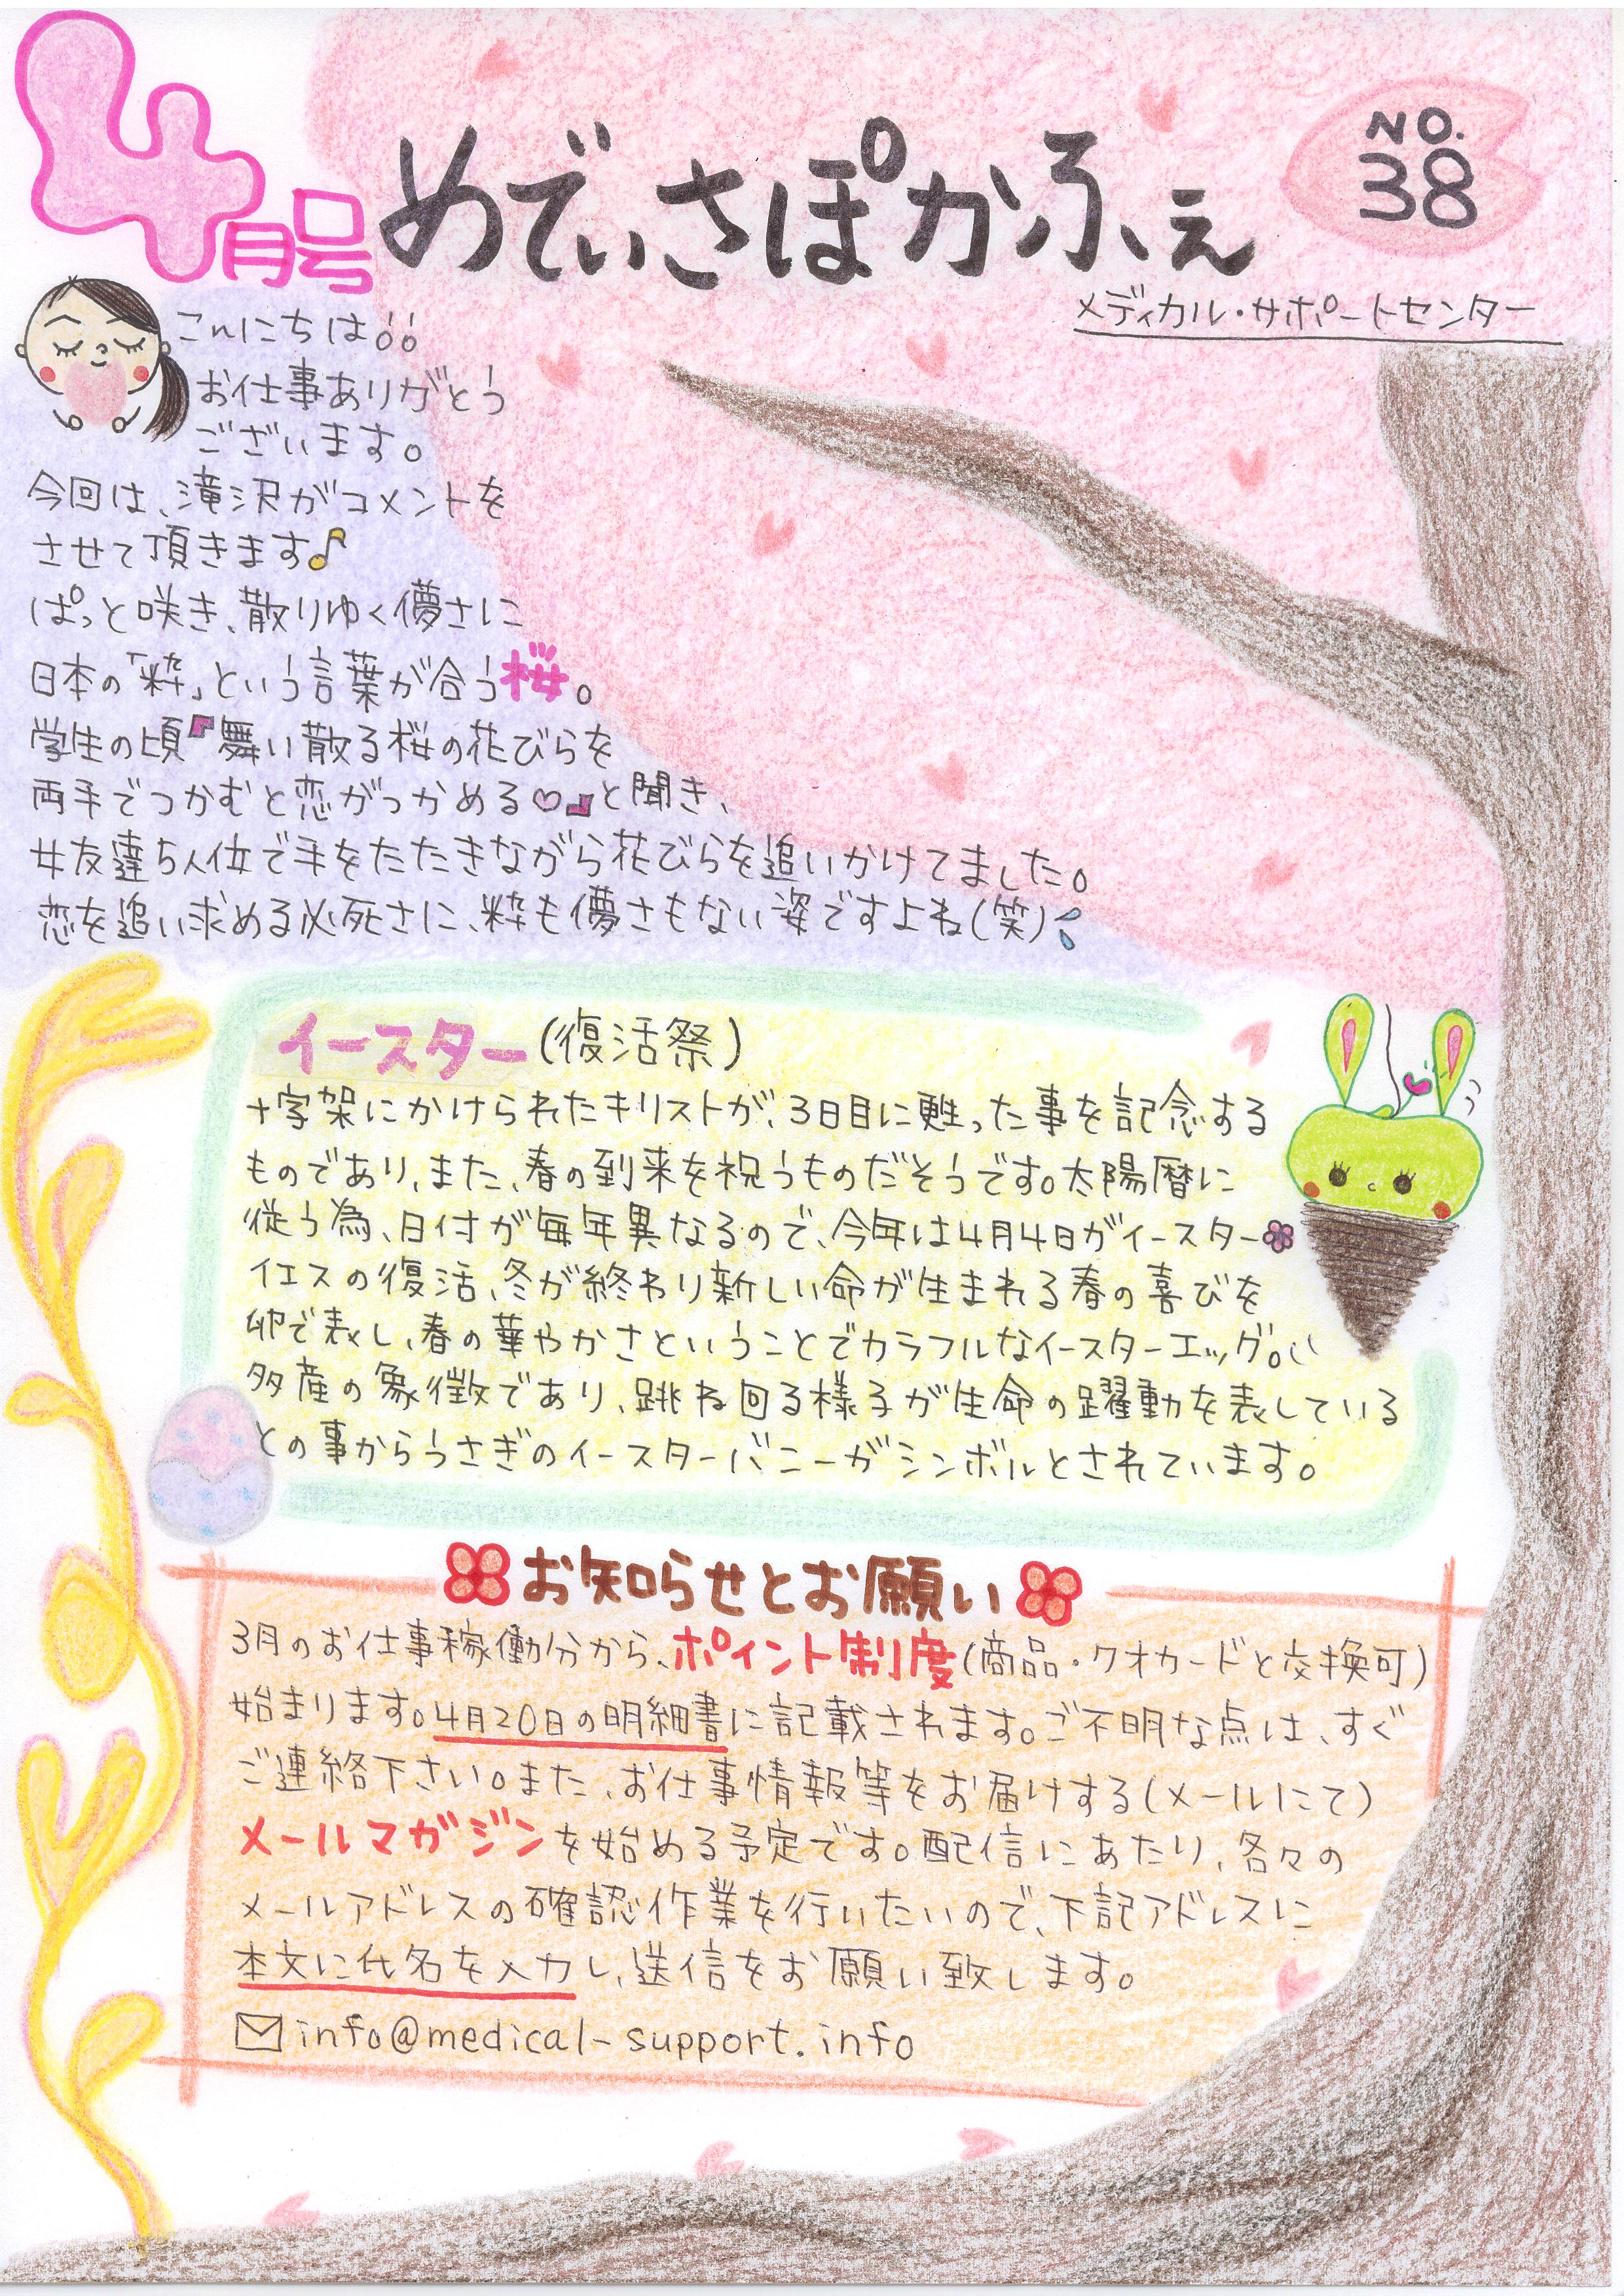 4月号
めでぃさぽかふぇ
NO.
38
メディカル・サポートセンター
こんにちは
お仕事ありがとう
ございます。
今回は、滝沢がコメントを
させて頂きます♪
ぱっと咲き、散りゆく儚さに
日本の「粋」という言葉が合う桜。
学生の頃『舞い散る桜の花びらを
両手でつかむと恋がつかめる♡』と聞き、
女友達5人位で手をたたきながら花びらを追いかけてました。
恋を追い求める必死さに、粋も儚さもない姿ですよね(笑)
イースター(復活祭)
十字架にかけられたキリストが、3日目に甦った事を記念する
ものであり、また、春の到来を祝うものだそうです。太陽暦に
従う為、日付が毎年異なるので、今年は4月4日がイースター
イエスの復活、冬が終わり新しい命が生まれる春の喜びを
卵で表し、春の華やかさということでカラフルなイースターエッグ。
多産の象徴であり、跳ね回る様子が生命の躍動を表している
との事からうさぎのイースターバニーがシンボルとされています。
お知らせとお願い
3月のお仕事稼働分から、ポイント制度(商品・クオカードと交換可)
始まります。4月20日の明細書に記載されます。ご不明な点は、すぐ
ご連絡下さい。また、お仕事情報等をお届けする(メールにて)
メールマガジンを始める予定です。配信にあたり、各々の
メールアドレスの確認作業を行いたいので、下記アドレスに
本文に氏名を入力し、送信をお願い致します。
info@medical-support.info